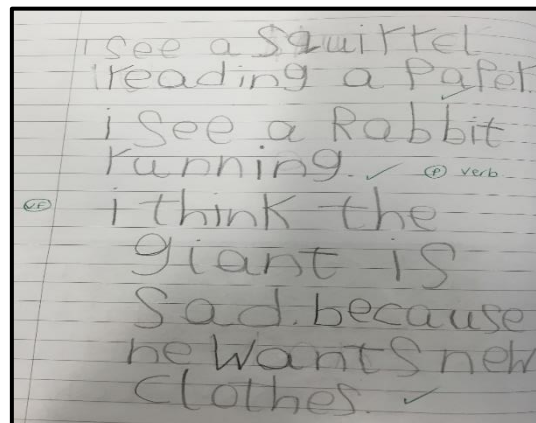 i see a Squirrel
reading a Paper
i See a Rabbit
running. ✓ (P) verb
VF i think the
giant is
Sad. because
he Wants new
Clothes. ✓